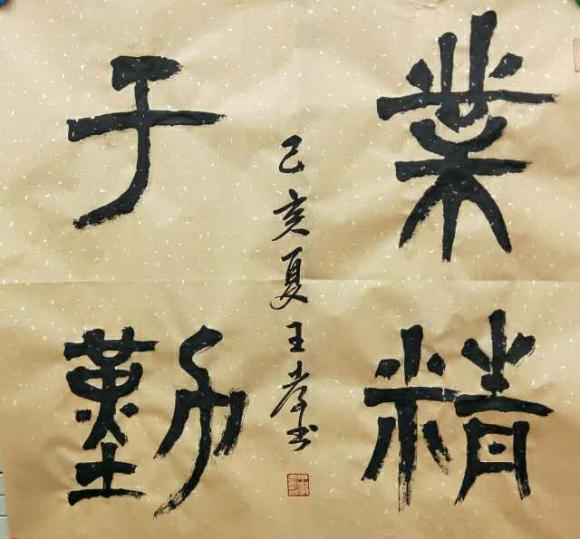 業精
于勤
己亥夏王孝书